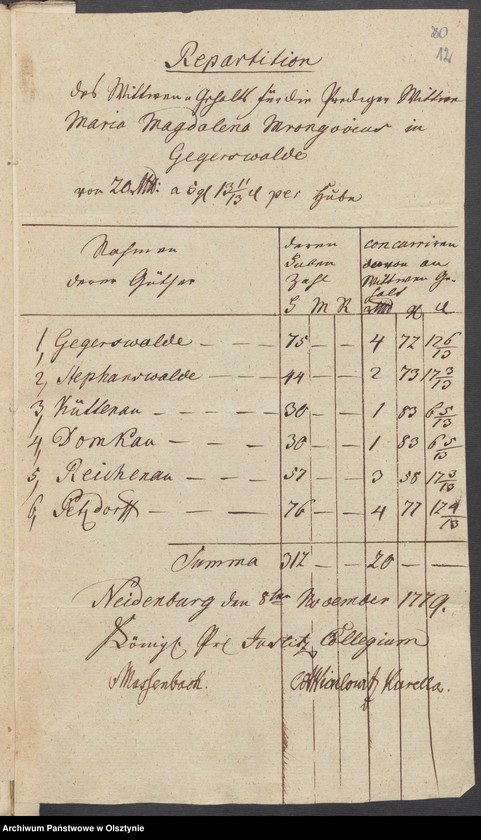 80
12
Repartition
des Wittwen-Gehalts für die Prediger Wittwe
Maria Magdalena Mrongovius in
Gegerswalde
von 20 Rtl: a 5 gl 13 11/13 d per Hube
Nahmen
derer Güther
deren
Huben
Zahl
H M R
concurriren
davon an
Wittwen Ge-
halt
Rtl gl d
1, Gegerswalde — — — 75 — — 4 72 12 6/13
2, Stephanswalde — — 44 — — 2 73 17 3/13
3, Küttenau — — — — 30 — — 1 83 6 5/13
4, Domkau — — — — 30 — — 1 83 6 5/13
5, Reichenau — — — 57 — — 3 58 17 3/13
6, Petzdorff — — — 76 — — 4 77 12 4/13
Summa 312 — — 20 — —
Neidenburg den 8ten November 1779.
Königl. Pr. Justitz Collegium
v Massenbach. Karella.
Archiwum Państwowe w Olsztynie